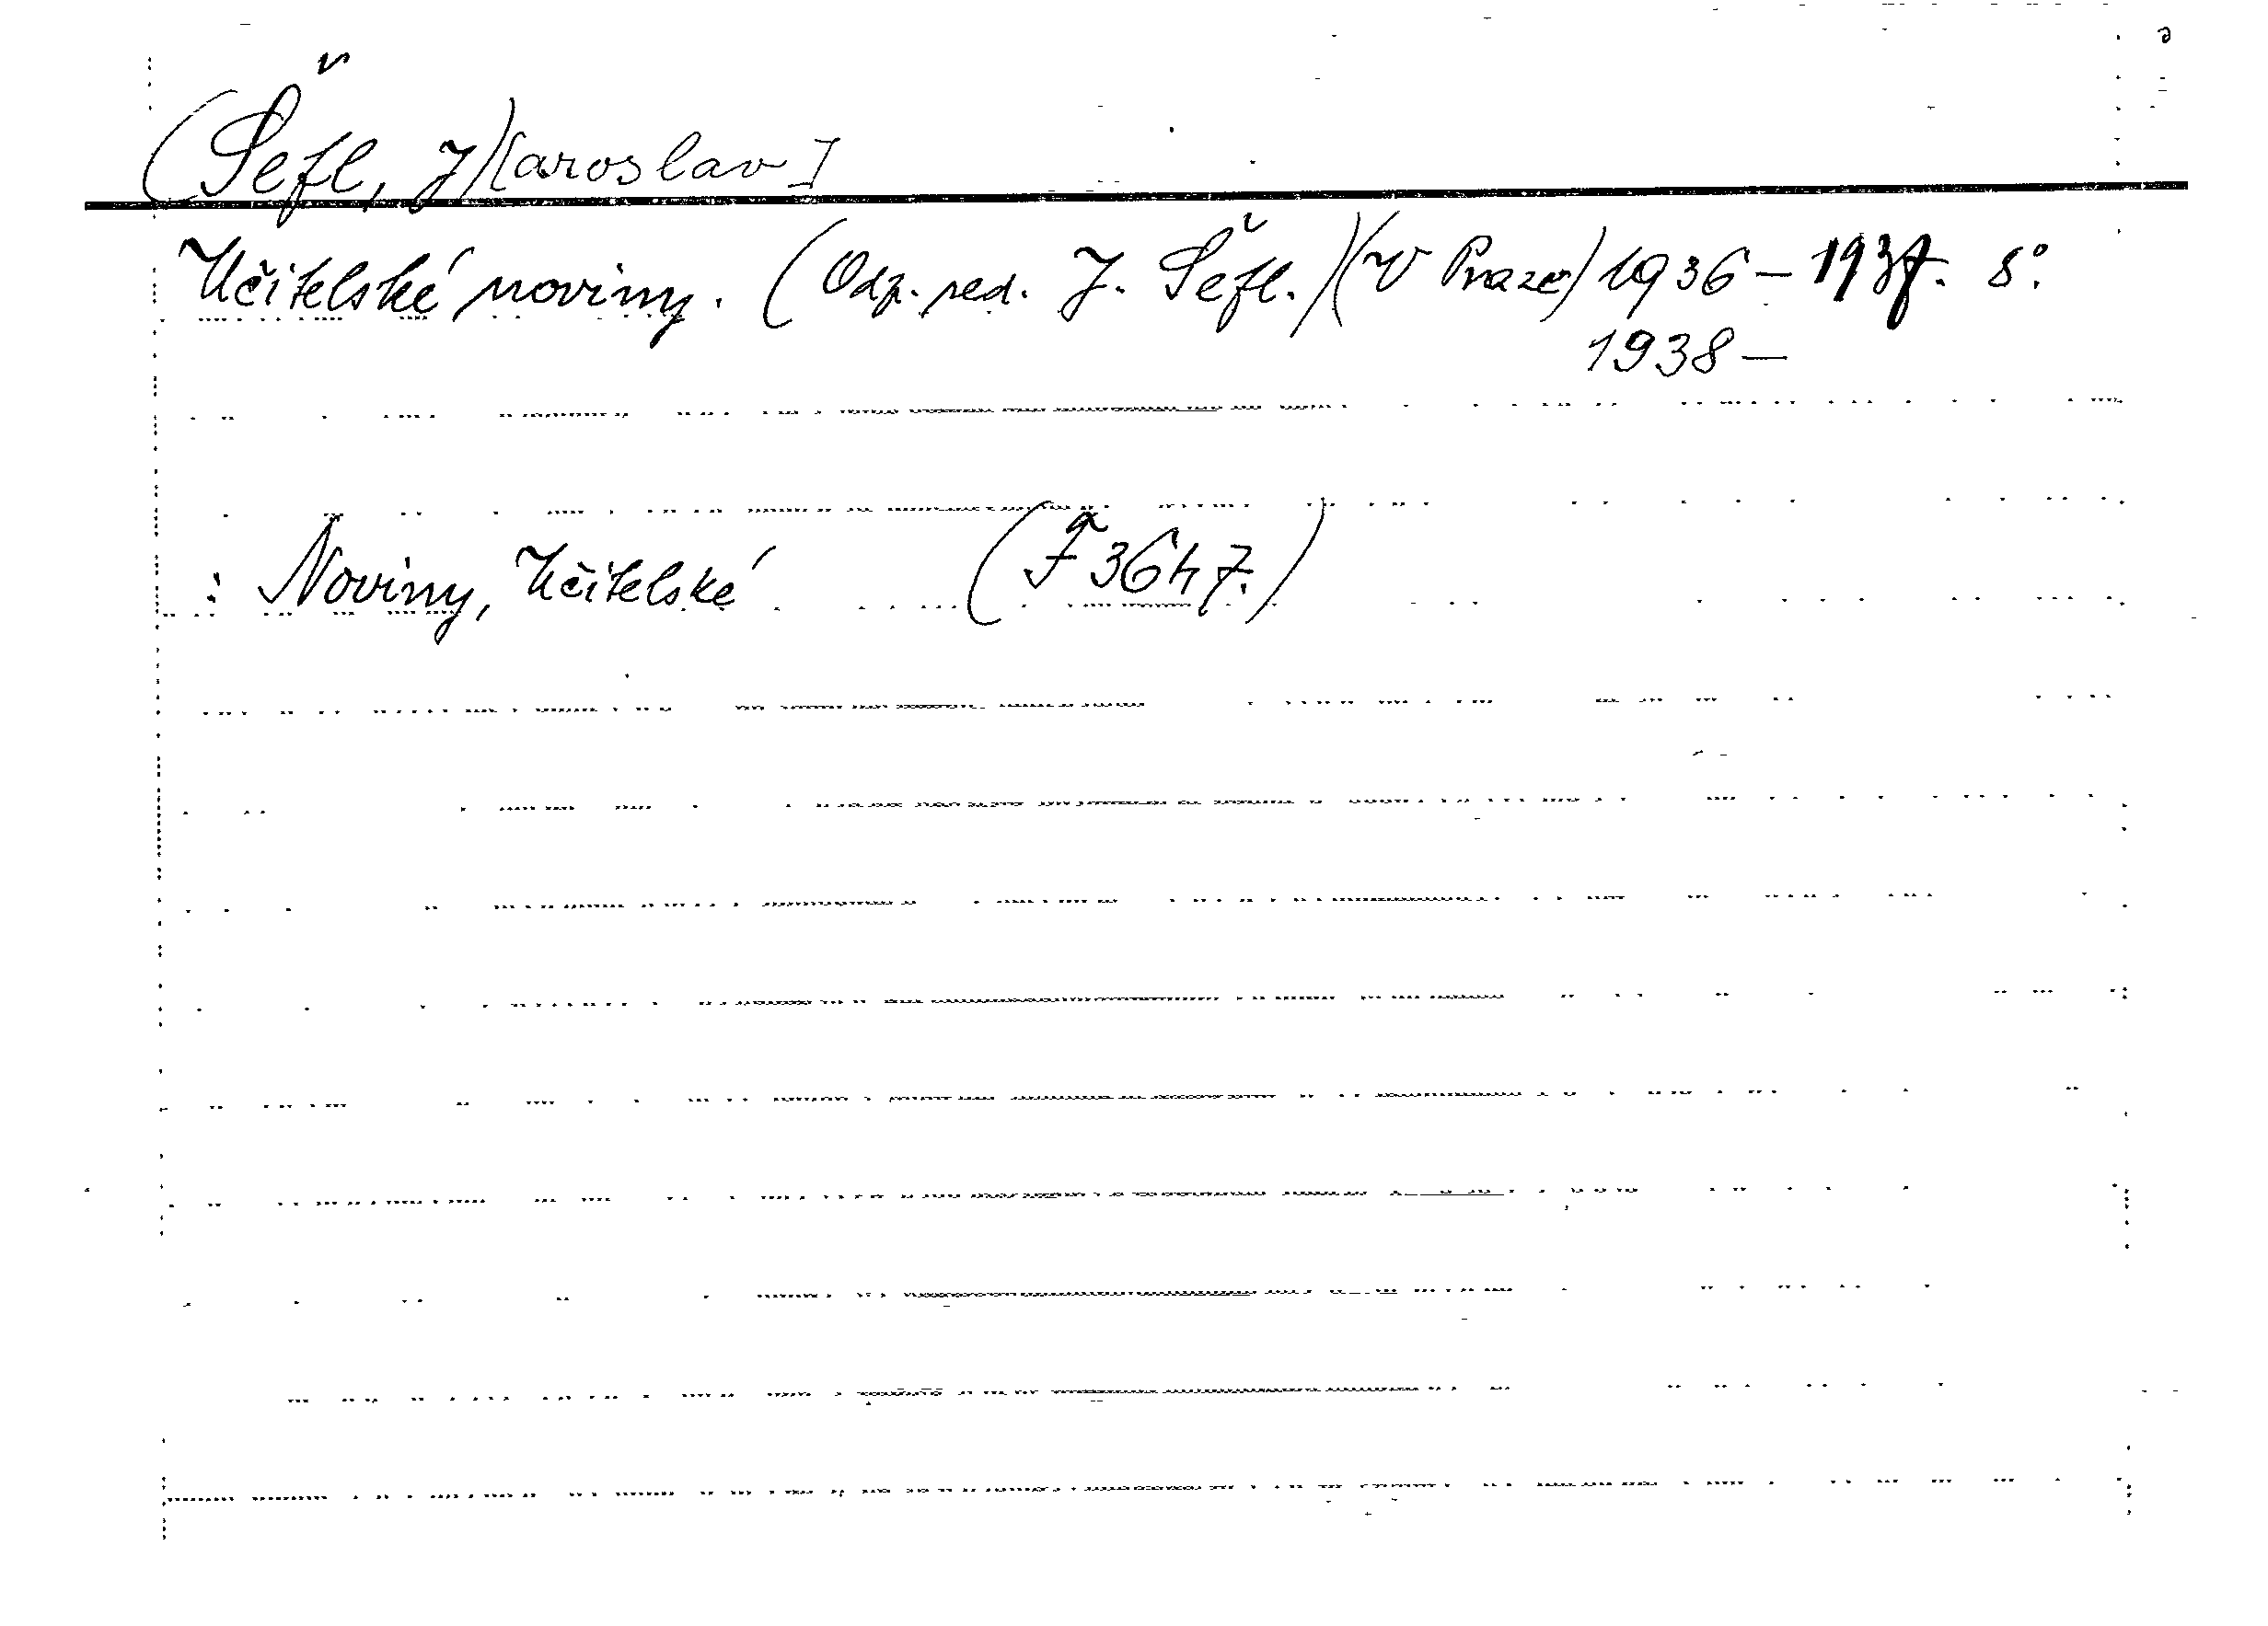 (Šefl, J)[aroslav]
Učitelské noviny. (Odp. red. J. Šefl.)(V Praze) 1936 – 1937. 8°.
1938 –
: Noviny, Učitelské (F 3647.)